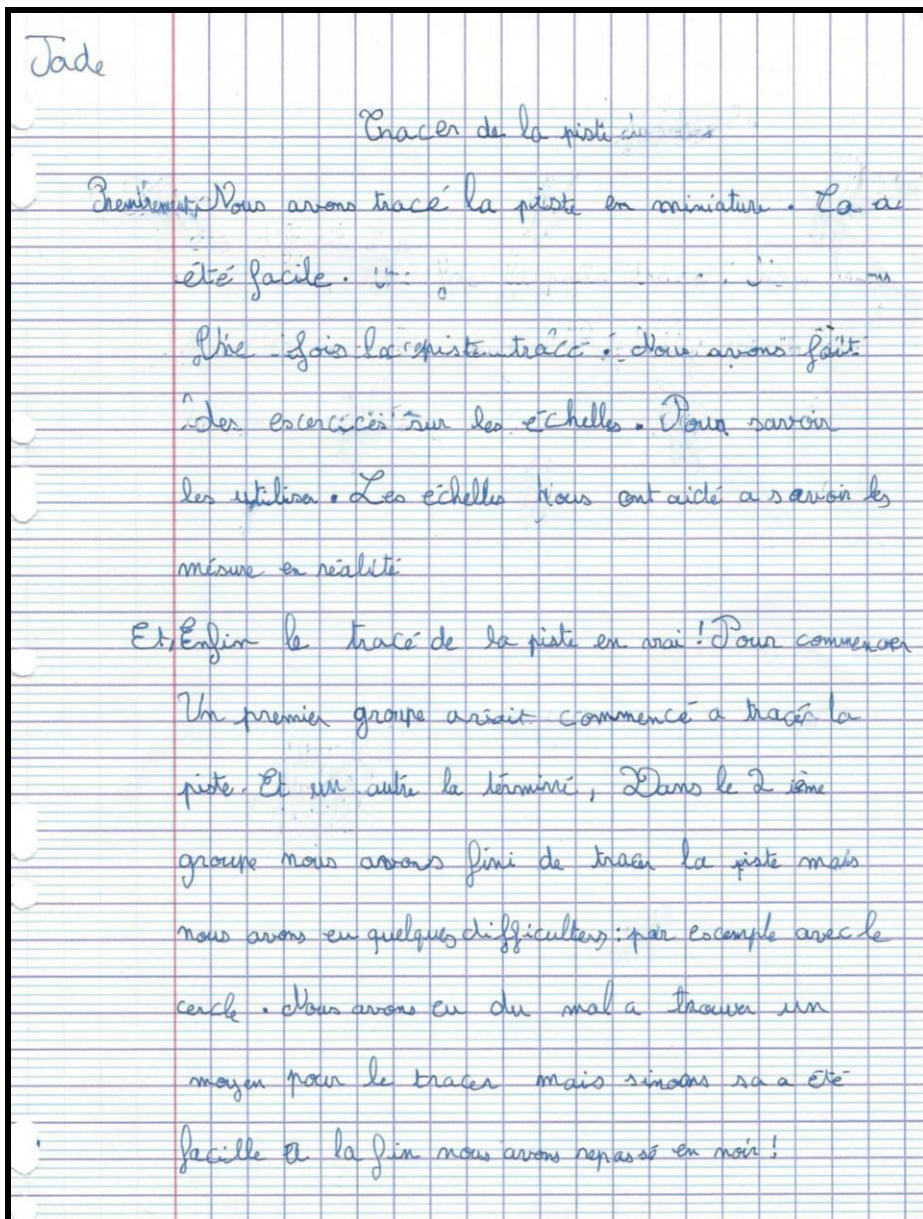 Jade
Tracer de la piste
Nous avons tracé la piste en miniature. Ca a
été facile.
Une fois la piste tracé. Nous avons fait
des excercices sur les échelles. Pour savoir
les utiliser. Les échelles Nous ont aidé a savoir les
mésure en réalité
Et, Enfin le tracé de la piste en vrai! Pour commencer
Un premier groupe avait commencé a tracér la
piste. Et un autre la términé, Dans le 2 ième
groupe nous avons fini de tracer la piste mais
nous avons eu quelques difficulters: par excemple avec le
cercle. Nous avons eu du mal a trouver un
moyen pour le tracer mais sinons sa a été
facille a la fin nous avons repassé en noir!